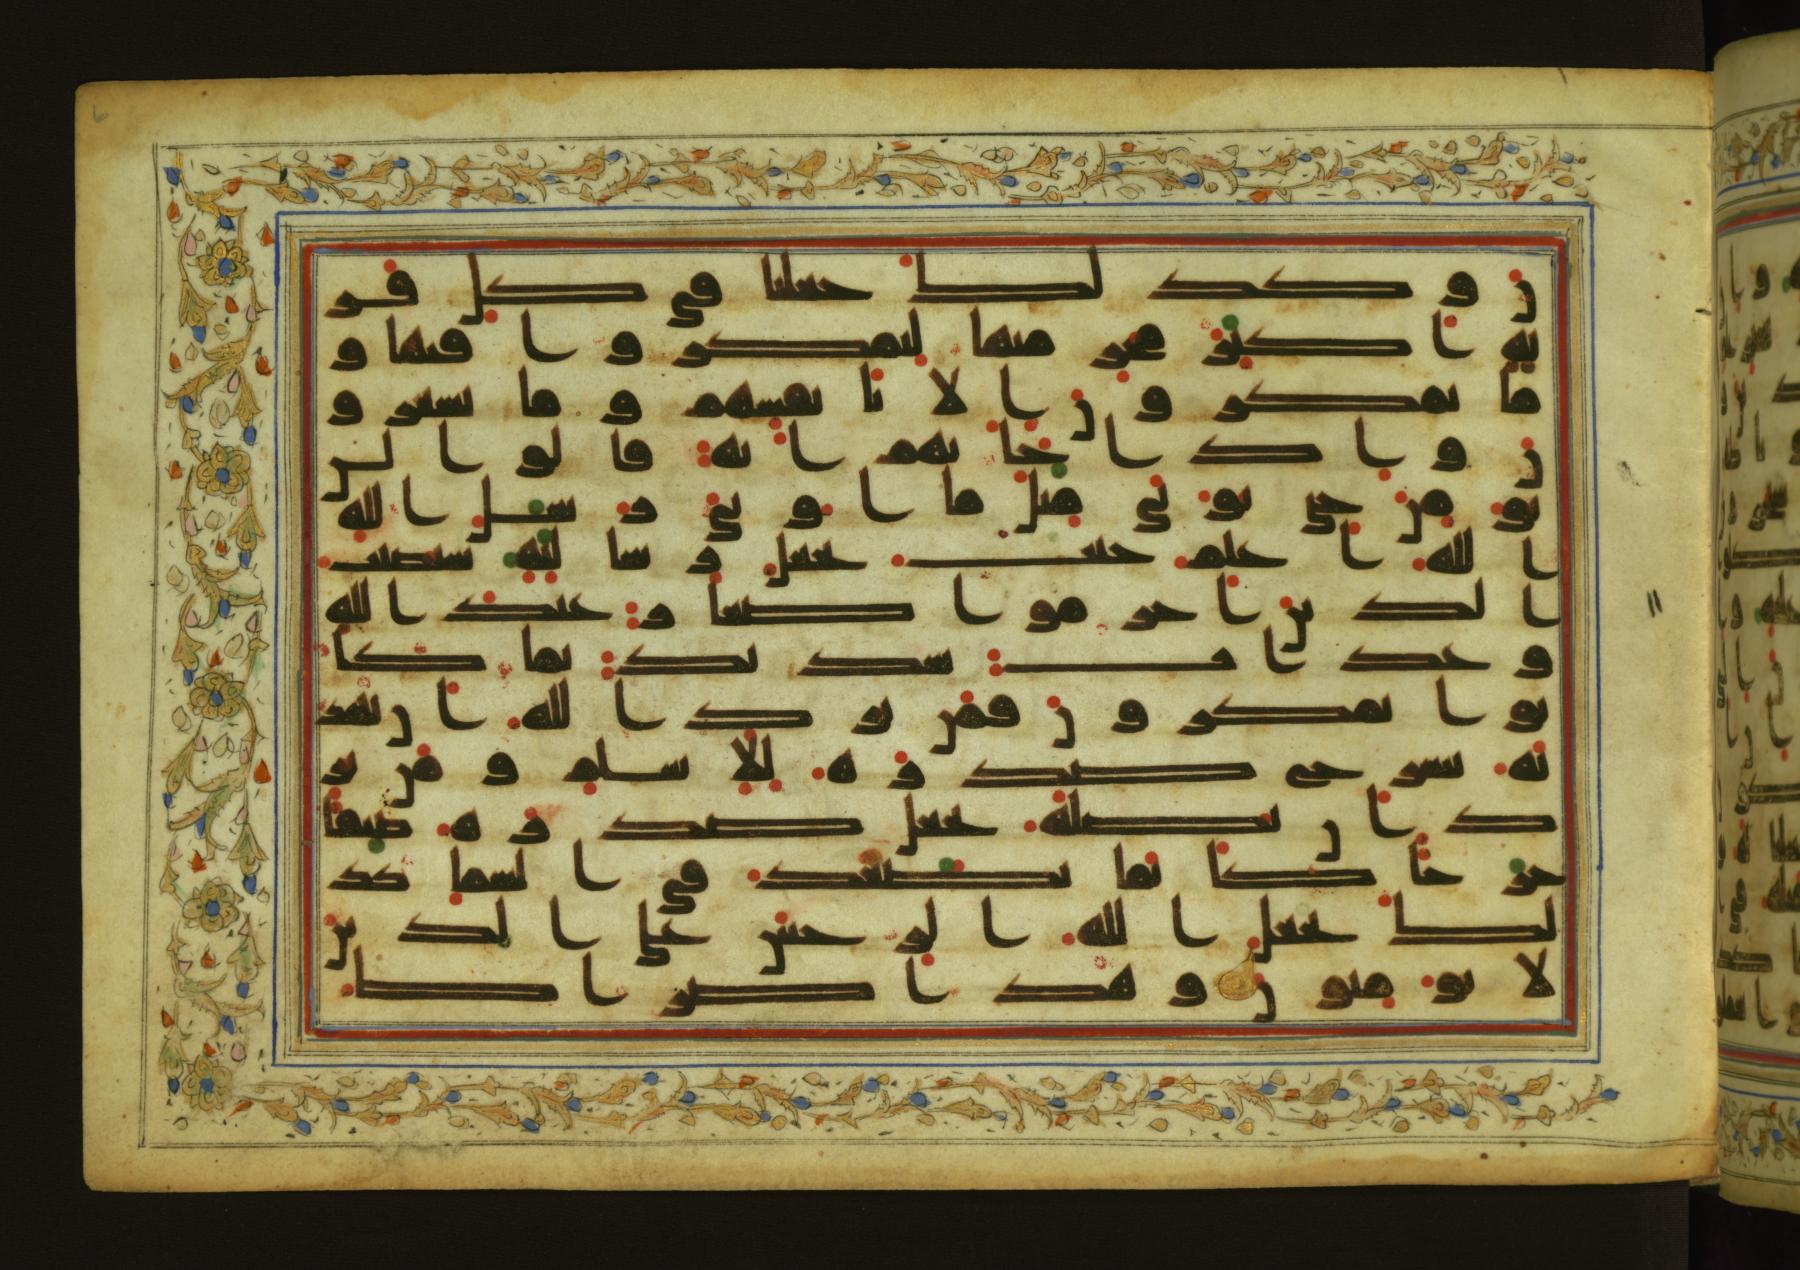 ن وكذلك جعلنا في كل قر
ية اكبر مجرميها ليمكروا فيها و
ما يمكرون الا بانفسهم وما يشعرو
ن واذا جاتهم اية قالوا لن
نومن حتى نوتى مثل ما اوتي رسل الله
الله اعلم حيث يجعل رسالته سيصيب
الذين اجرموا صغار عند الله
وعذاب شديد بما كا
نوا يمكرون فمن يرد الله ان يهد
يه يشرح صدره للاسلم ومن ير
د ان يضله يجعل صدره ضيقا
حرجا كانما يصعد في السما كذ
لك يجعل الله الرجس على الذين
لا يومنون وهذا صرط